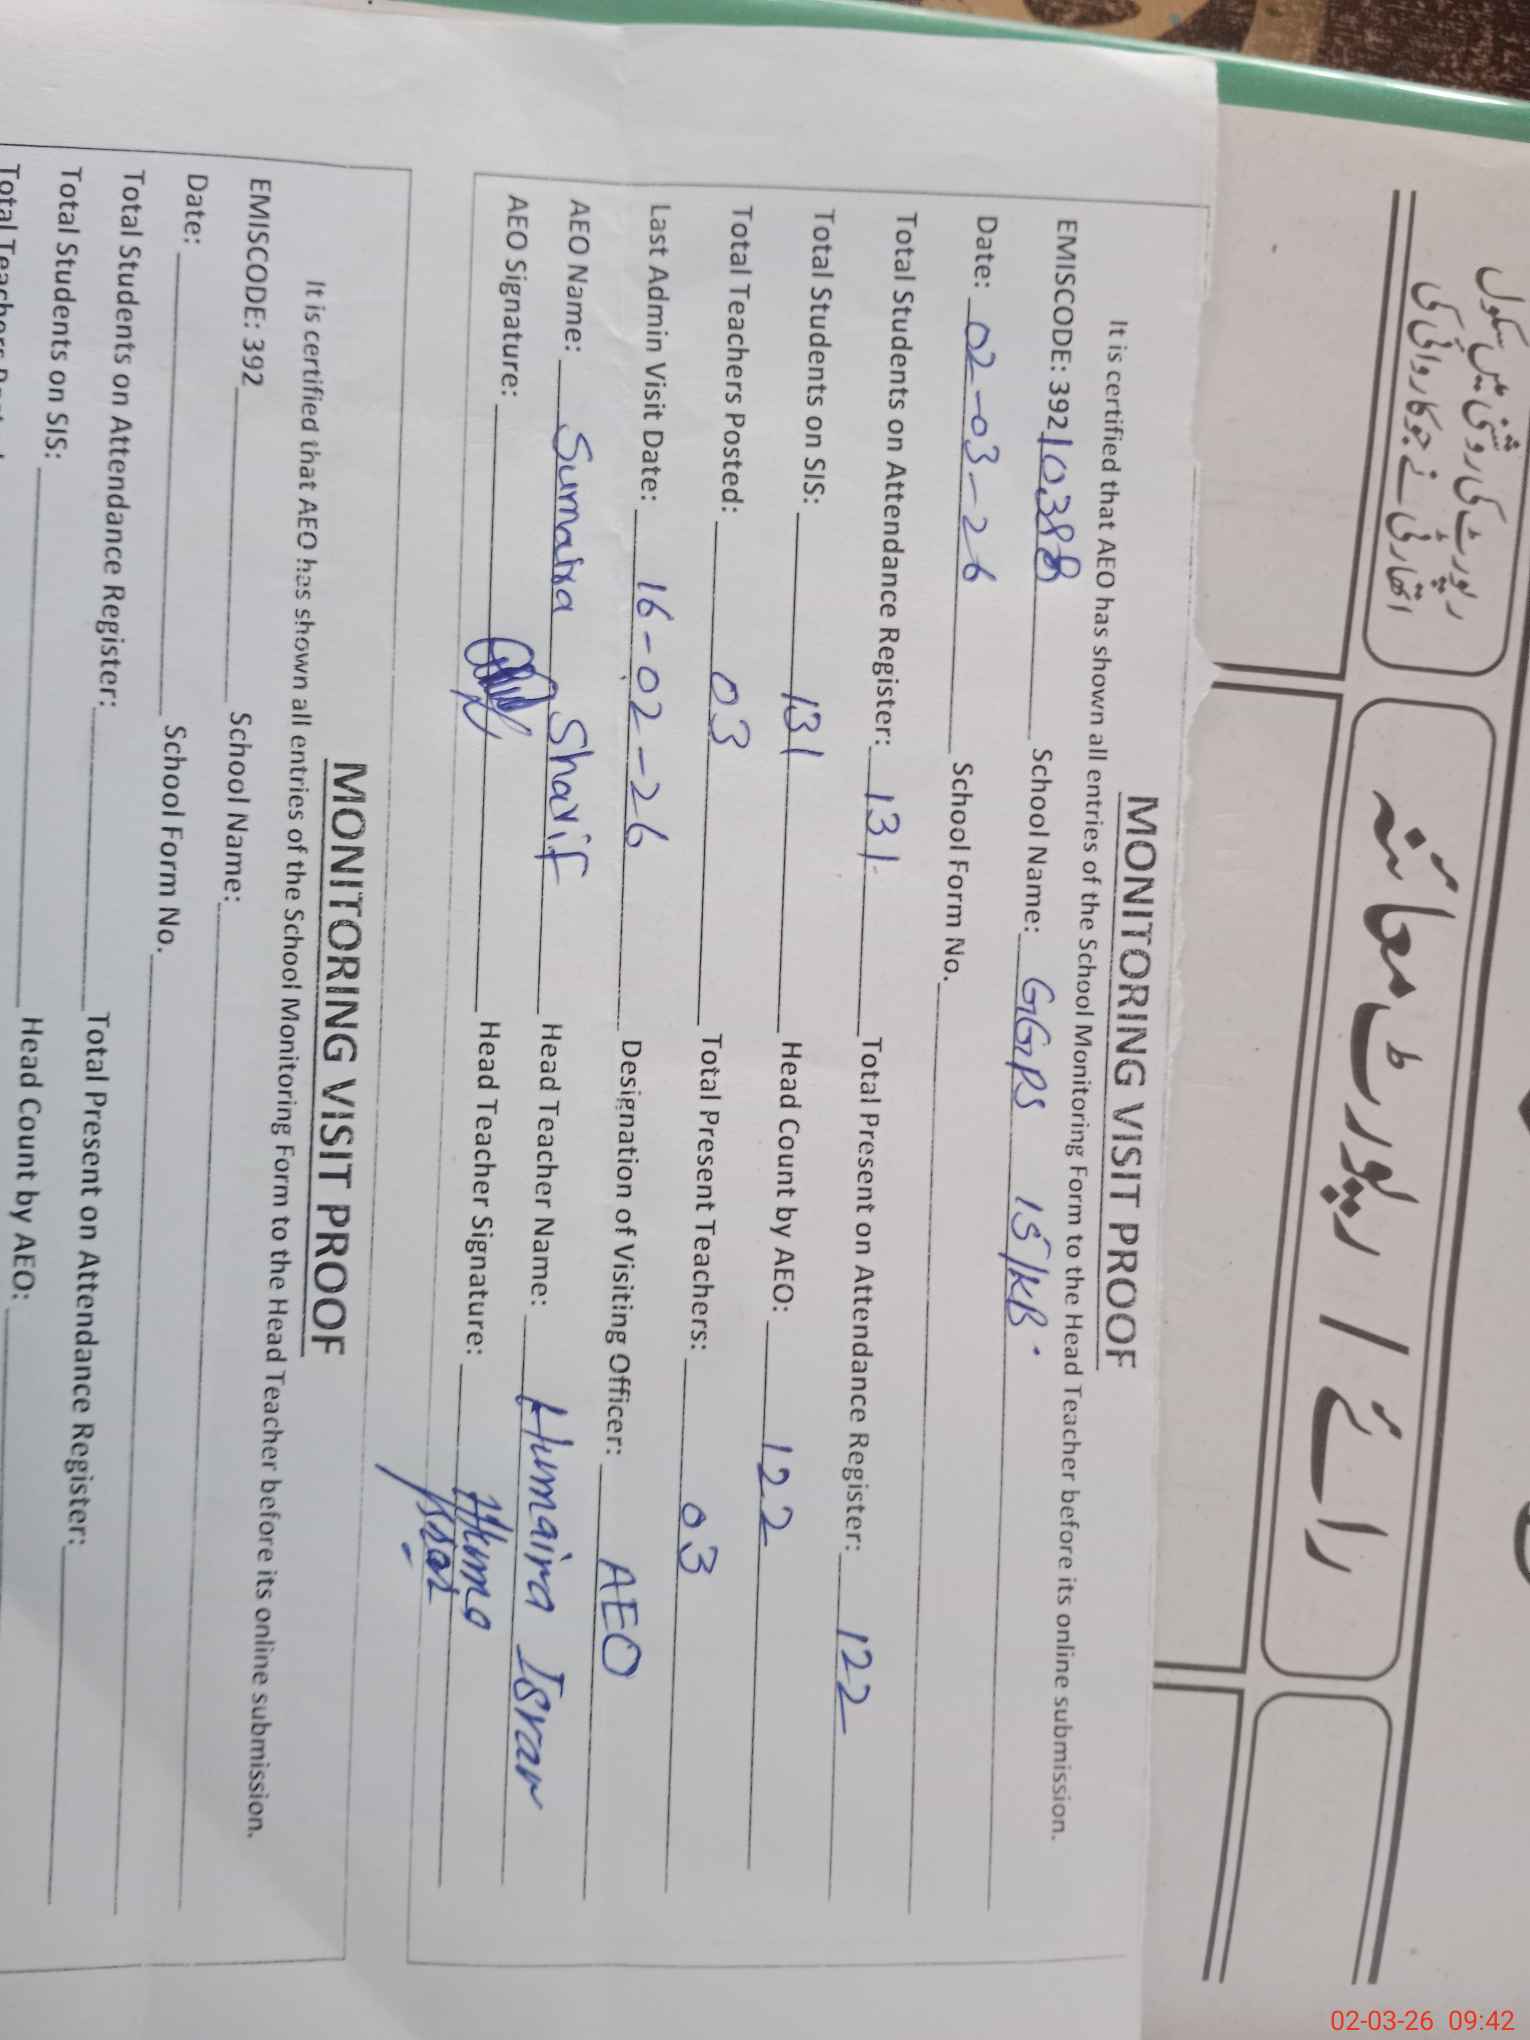 رپورٹ کی روشنی میں سکول
اتھارٹی نے جو کارروائی کی
رائے / رپورٹ معائنہ
MONITORING VISIT PROOF
It is certified that AEO has shown all entries of the School Monitoring Form to the Head Teacher before its online submission.
EMISCODE: 39210388 School Name: GGPS 15/KB.
Date: 02-03-26 School Form No.
Total Students on Attendance Register: 131 Total Present on Attendance Register: 122
Total Students on SIS: 131 Head Count by AEO: 122
Total Teachers Posted: 03 Total Present Teachers: 03
Last Admin Visit Date: 16-02-26 Designation of Visiting Officer: AEO
AEO Name: Sumaira Sharif Head Teacher Name: Humaira Israr
AEO Signature: Head Teacher Signature:
MONITORING VISIT PROOF
It is certified that AEO has shown all entries of the School Monitoring Form to the Head Teacher before its online submission.
EMISCODE: 392 School Name:
Date: School Form No.
Total Students on Attendance Register: Total Present on Attendance Register:
Total Students on SIS: Head Count by AEO:
Total Teachers
02-03-26 09:42